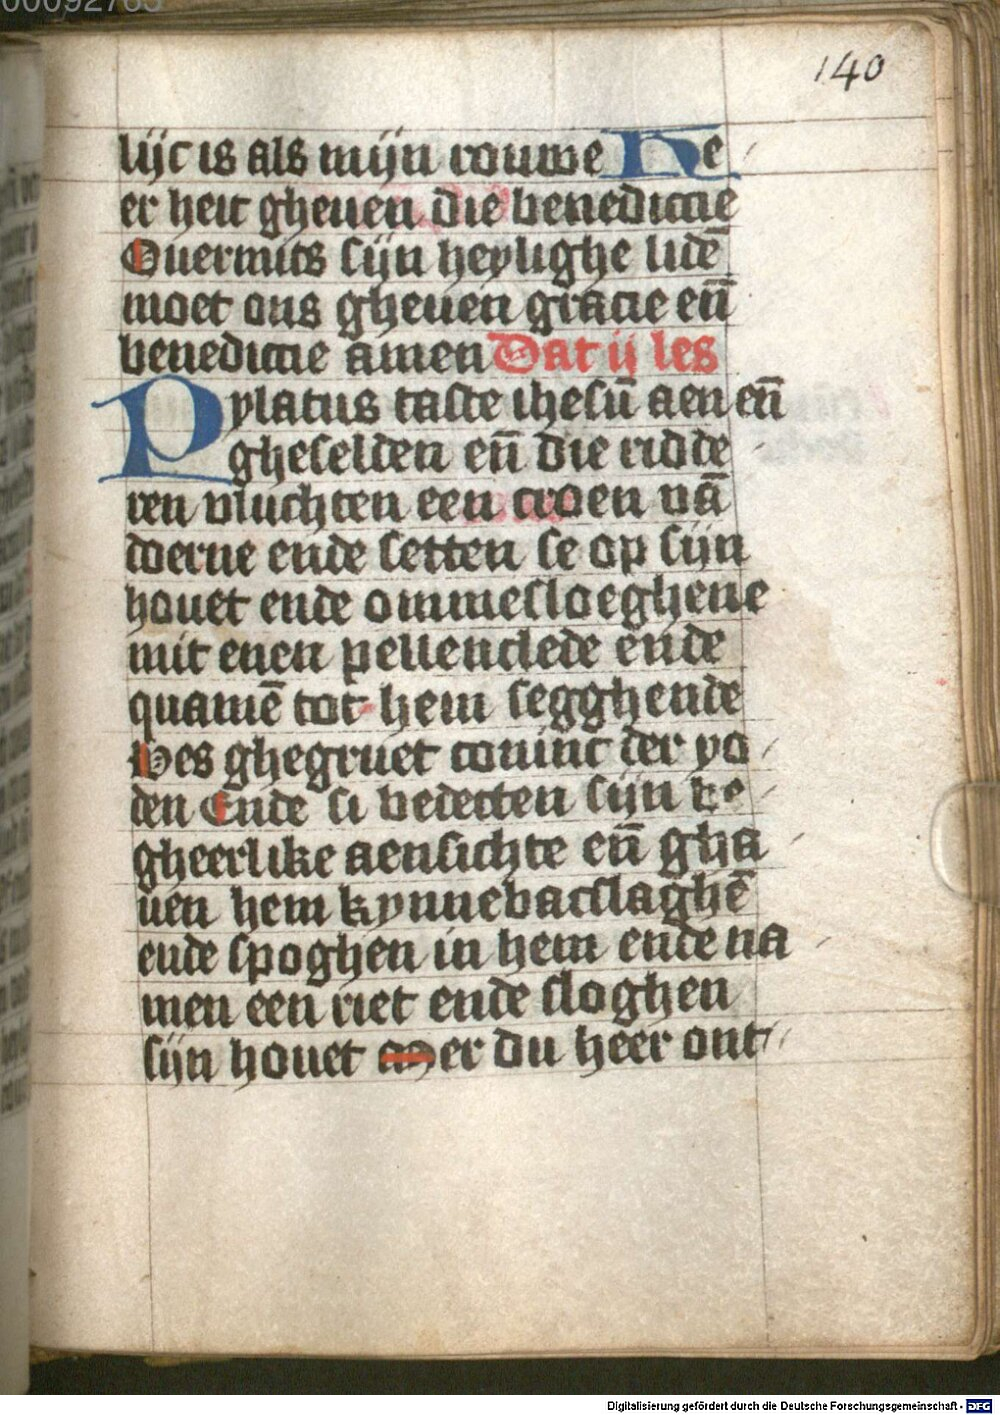 00092765
140
lijc is als mijn rouwe He
er heit gheuen die benedictie
Ouermits sijn heylighe lidē
moet ons gheuen gracie eñ
benedictie amen Dat ij les
Pylatus taste ihesū aen eñ
gheselden eñ die ridde
ren vluchten een croen vā
doerne ende setten se op sijn
houet ende ommesloeghene
mit enen pellenclede ende
quamē tot hem segghende
Wes ghegruet coninc der yo
den Ende si bedecten sijn be
gheerlike aensichte eñ gha
uen hem kynnebacslaghē
ende spoghen in hem ende na
men een riet ende sloghen
sijn houet Mer du heer ont
Digitalisierung gefördert durch die Deutsche Forschungsgemeinschaft - DFG